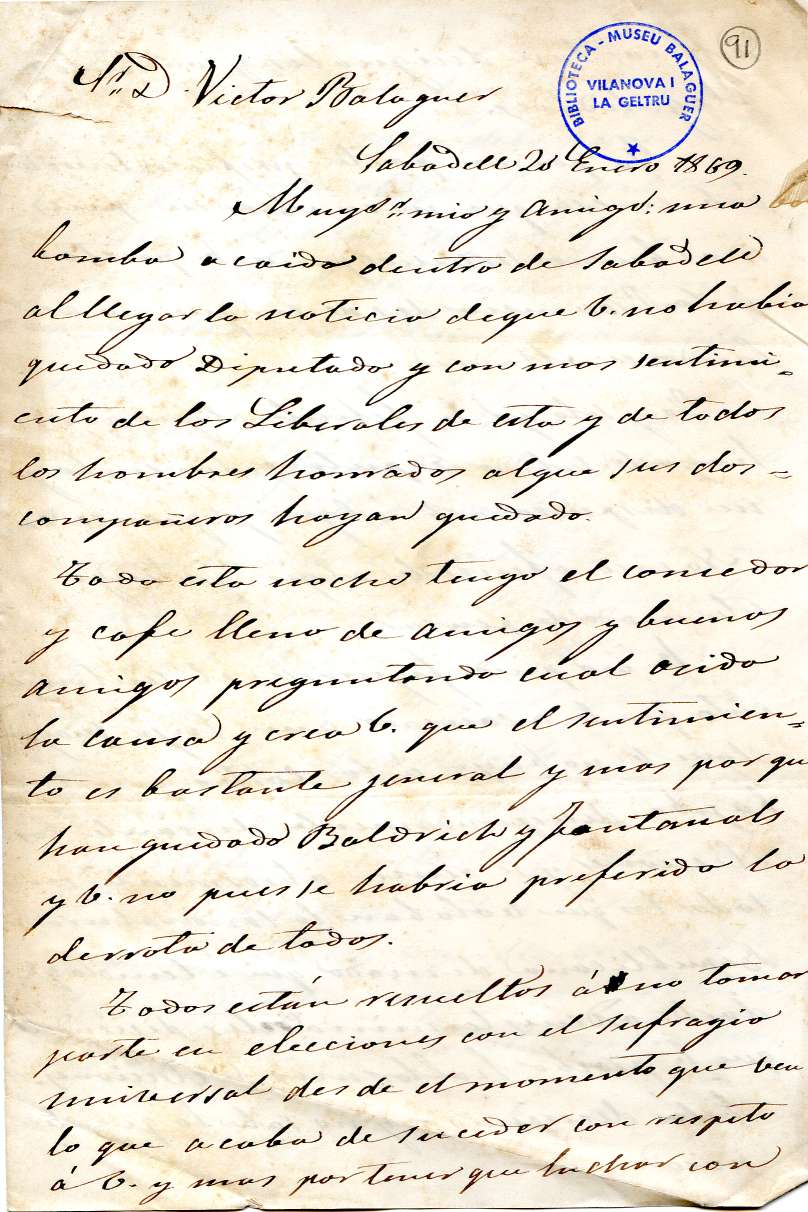 91
BIBLIOTECA - MUSEU BALAGUER
VILANOVA I
LA GELTRU
Sr. D. Victor Balaguer
Sabadell Enero 1869.
Muy Sr. mio y amigo: una
bomba a caido dentro de Sabadell
al llegar la noticia deque V. no habia
quedado Diputado y con mas sentimi-
ento de los Liberales de esta y de todos
los hombres honrados alque sus dos-
compañeros hayan quedado.
Toda esta noche tengo el comedor
y cafe lleno de amigos y buenos
amigos preguntando cual acido
la causa y crea V. que el sentimien-
to es bastante jeneral y mas por qu
han quedado Baldrich y Fontanals
y V. no pues se habria preferido la
derrota de todos.
Todos están resueltos á no tomar
parte en elecciones con el sufragio
universal des de el momento que ven
lo que acaba de suceder con respeto
á V. y mas por tener que luchar con